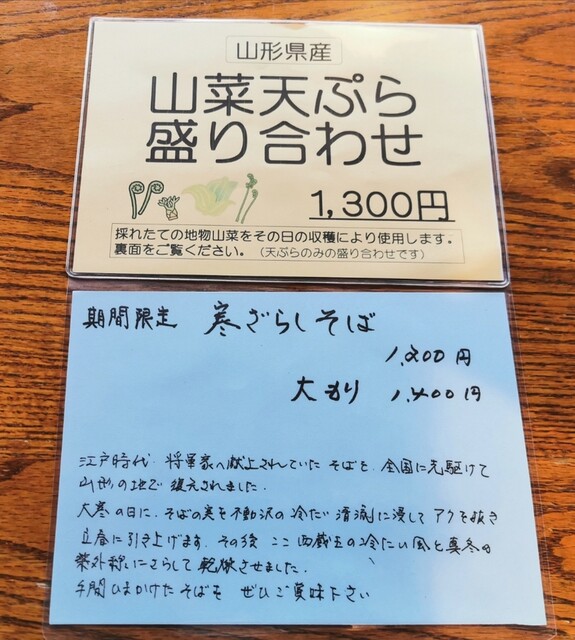 山形県産
山菜天ぷら
盛り合わせ
1,300円
採れたての地物山菜をその日の収穫により使用します。
裏面をご覧ください。（天ぷらのみの盛り合わせです）
期間限定 寒ざらしそば
1,200円
大もり 1,400円
江戸時代 将軍家へ献上されていたそばを、全国に先駆けて
山形の地で 復元されました.
大寒の日に、そばの実を不動沢の冷たい清流に浸してアクを抜き
立春に引き上げます. その後 ここ西蔵王の冷たい風と真冬の
紫外線にさらして 乾燥させました.
手間ひまかけたそばを ぜひご賞味下さい